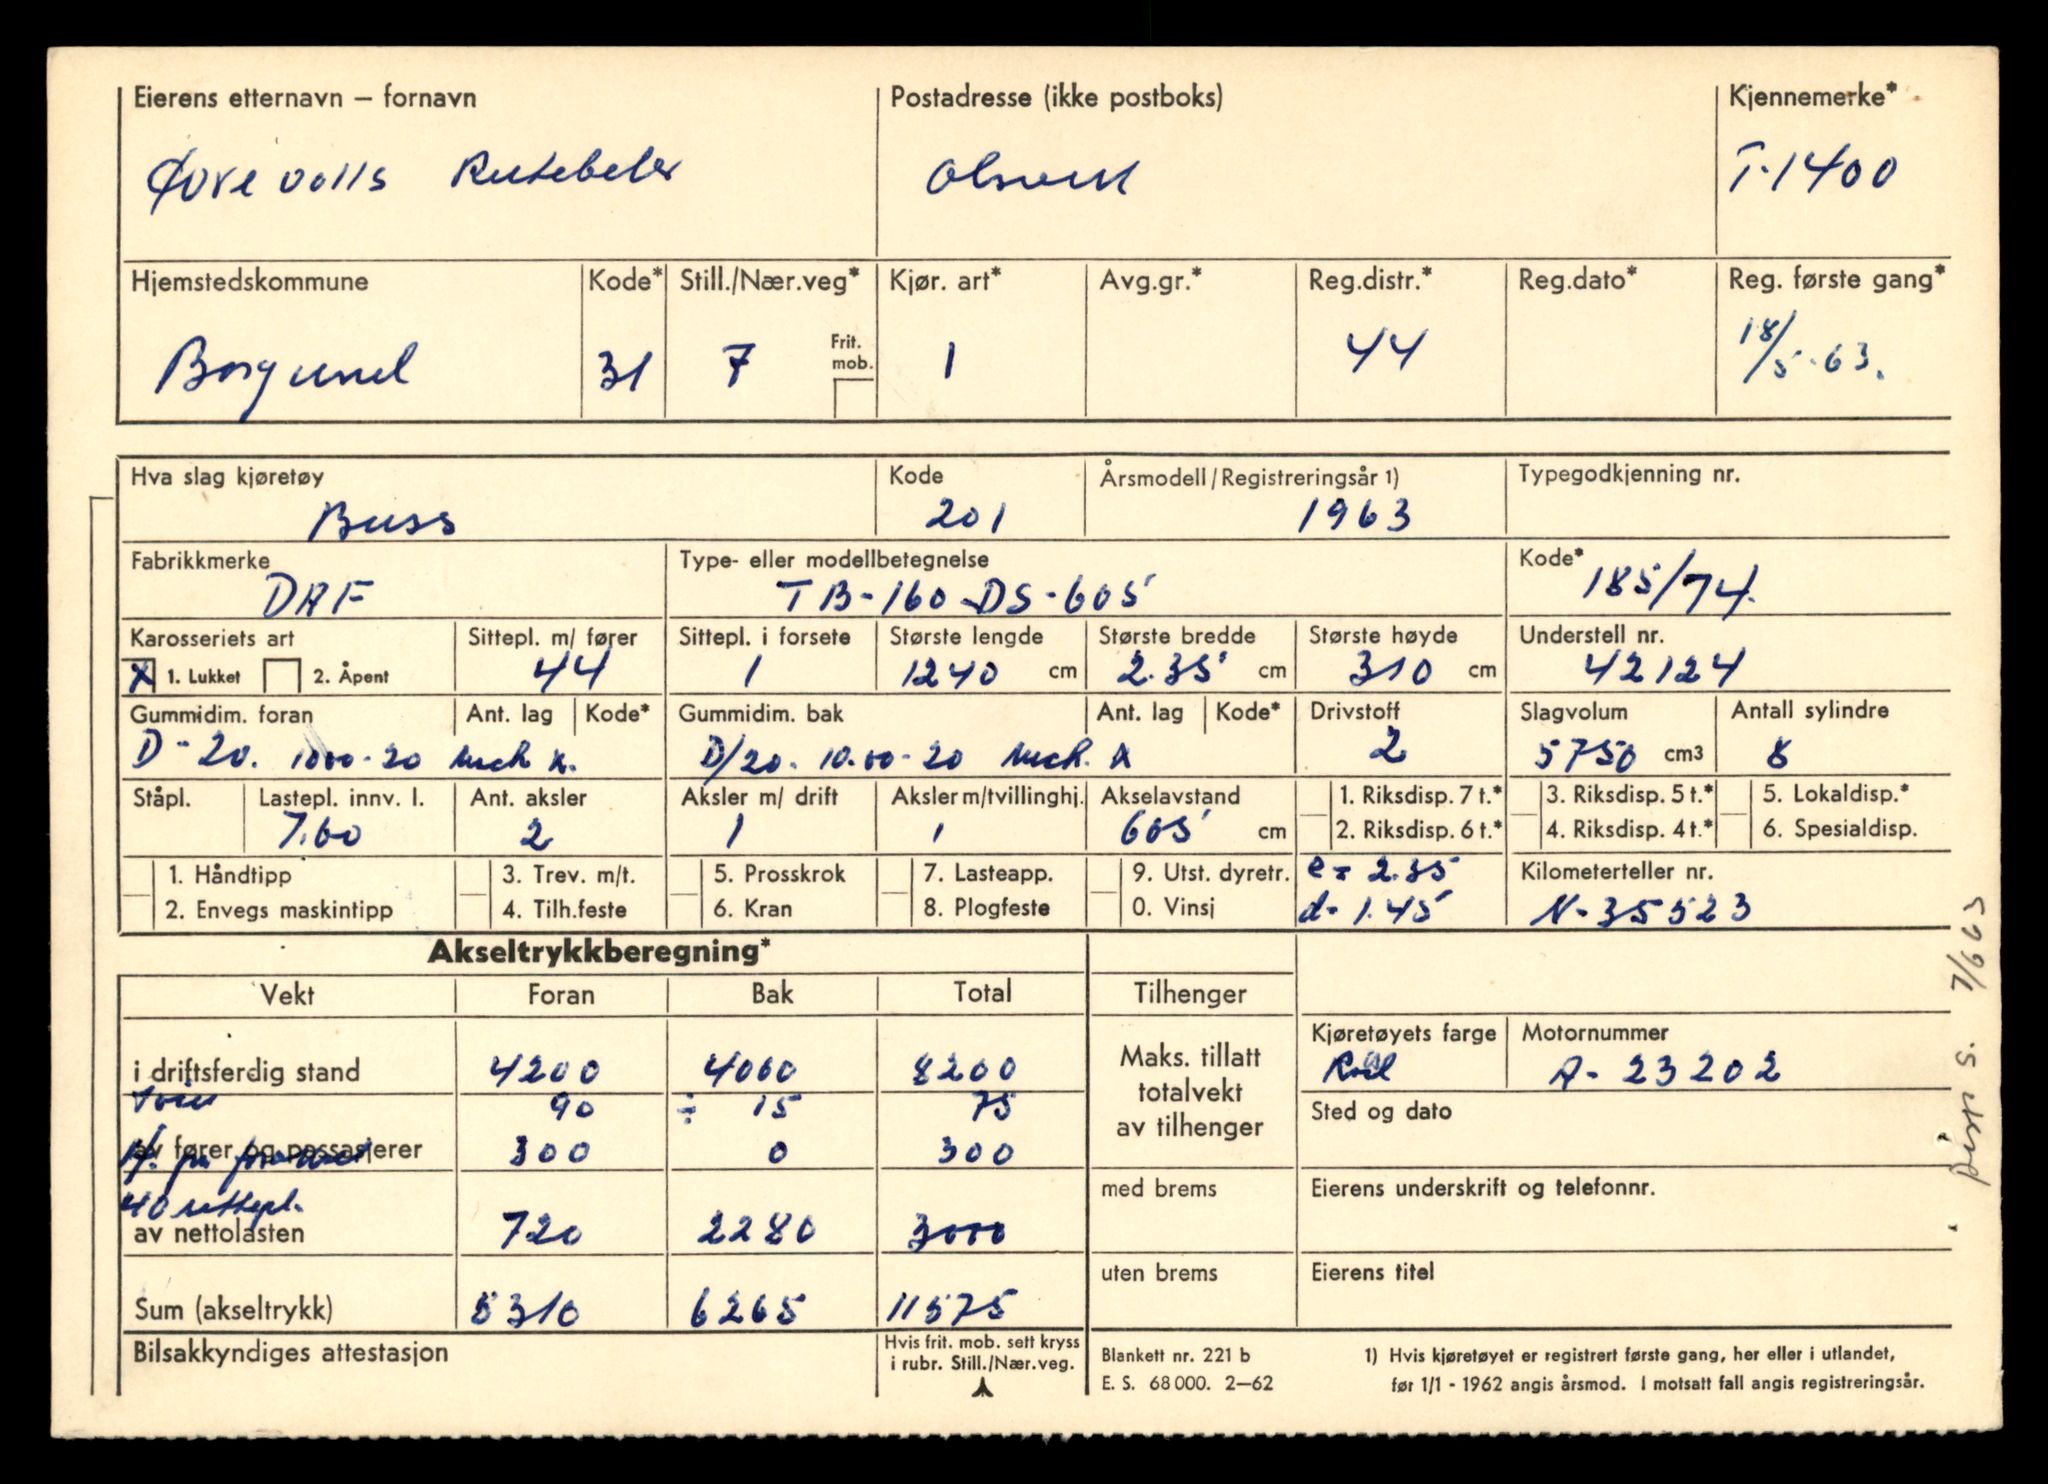 Eierens etternavn – fornavn
Postadresse (ikke postboks)
Kjennemerke*
Ørevolls Rutebeler
T-1400
Hjemstedskommune
Kode*
Still./Nær.veg*
Kjør. art*
Avg.gr.*
Reg.distr.*
Reg.dato*
Reg. første gang*
Borgund
31
7
Frit. mob.
1
44
18/5-63.
Hva slag kjøretøy
Kode
Årsmodell/Registreringsår 1)
Typegodkjenning nr.
Buss
201
1963
Fabrikkmerke
Type- eller modellbetegnelse
Kode*
DAF
TB-160-DS-605
185/74.
Karosseriets art
Sittepl. m/ fører
Sittepl. i forsete
Største lengde
Største bredde
Største høyde
Understell nr.
X 1. Lukket
2. Åpent
44
1
1240 cm
2.35 cm
310 cm
42124
Gummidim. foran
Ant. lag
Kode*
Gummidim. bak
Ant. lag
Kode*
Drivstoff
Slagvolum
Antall sylindre
D-20. 1000-20 Mich X.
D/20. 10.00-20 Mich. X
2
5750 cm3
8
Ståpl.
Lastepl. innv. l.
Ant. aksler
Aksler m/ drift
Aksler m/tvillinghj.
Akselavstand
1. Riksdisp. 7 t.*
3. Riksdisp. 5 t.*
5. Lokaldisp.*
7.60
2
1
1
605 cm
2. Riksdisp. 6 t.*
4. Riksdisp. 4 t.*
6. Spesialdisp.
1. Håndtipp
3. Trev. m/t.
5. Prosskrok
7. Lasteapp.
9. Utst. dyretr.
e = 2.35
Kilometerteller nr.
2. Envegs maskintipp
4. Tilh.feste
6. Kran
8. Plogfeste
0. Vinsj
d- 1.45
N-35523
Akseltrykkberegning*
Vekt
Foran
Bak
Total
Tilhenger
i driftsferdig stand
4200
4000
8200
Maks. tillatt totalvekt av tilhenger
Kjøretøyets farge
Motornummer
Rød
A-23202
90
÷ 15
75
Sted og dato
av fører og passasjerer
300
0
300
40 sittepl.
av nettolasten
720
2280
3000
med brems
Eierens underskrift og telefonnr.
Sum (akseltrykk)
5310
6265
11575
uten brems
Eierens titel
Bilsakkyndiges attestasjon
Hvis frit. mob. sett kryss
i rubr. Still./Nær.veg.
Blankett nr. 221 b
E. S. 68 000. 2–62
1) Hvis kjøretøyet er registrert første gang, her eller i utlandet,
før 1/1 - 1962 angis årsmod. I motsatt fall angis registreringsår.
S. 7/6 63